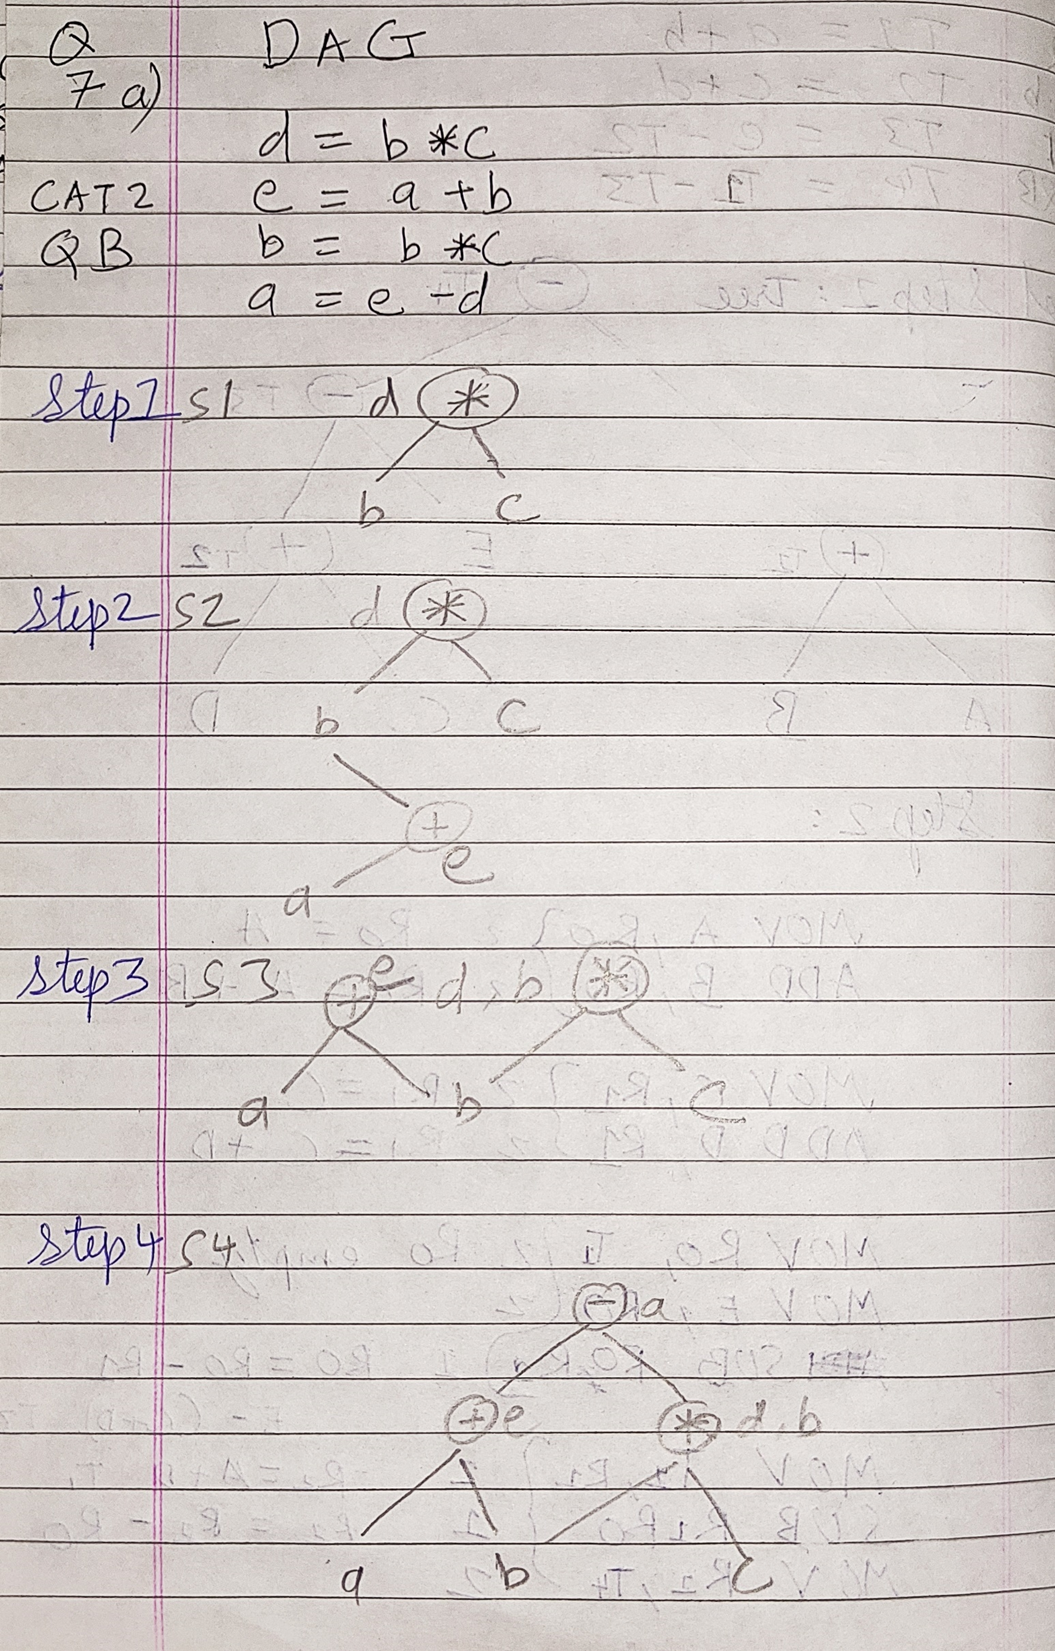 Q DAG
7 a)
d = b * c
CAT2 e = a + b
QB b = b * c
a = e - d
Step1 S1 d *
b c
Step2 S2 d *
b c
+
e
a
Step3 S3 + e b, d *
a b c
Step4 S4
- a
+ e * d, b
a b c